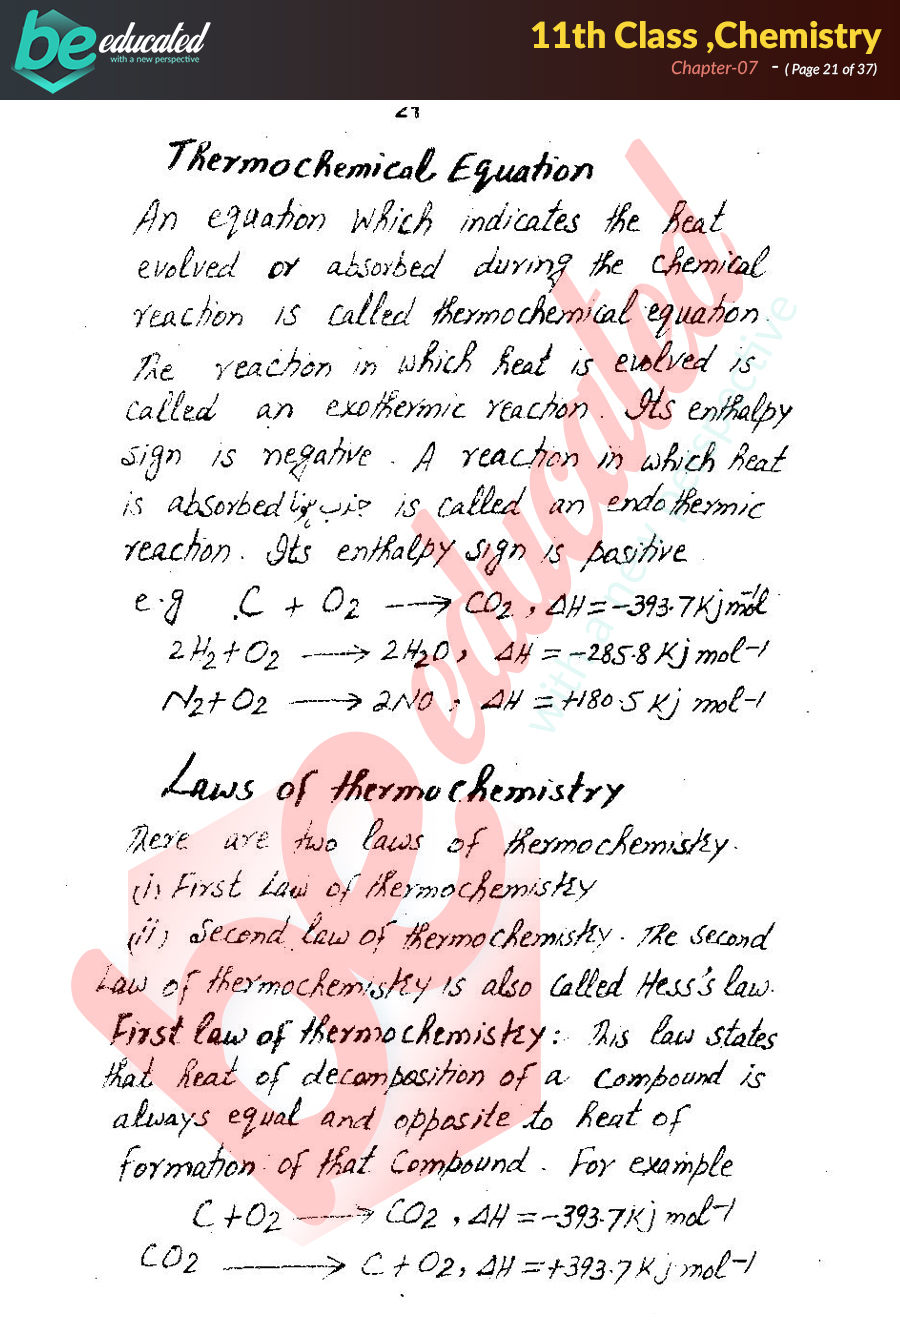 be educated
with a new perspective
11th Class ,Chemistry
Chapter-07 - ( Page 21 of 37)
Thermochemical Equation
An equation which indicates the heat
evolved or absorbed during the chemical
reaction is called thermochemical equation.
The reaction in which heat is evolved is
called an exothermic reaction. Its enthalpy
sign is negative. A reaction in which heat
is absorbed جذب ہونا is called an endothermic
reaction. Its enthalpy sign is positive
e.g C + O2 → CO2, ΔH = -393.7 Kj mol-1
2H2 + O2 → 2H2O, ΔH = -285.8 Kj mol-1
N2 + O2 → 2NO, ΔH = +180.5 Kj mol-1
Laws of thermochemistry
There are two laws of thermochemistry.
(i) First Law of thermochemistry
(ii) Second law of thermochemistry. The second
Law of thermochemistry is also called Hess's law.
First law of thermochemistry: This law states
that heat of decomposition of a compound is
always equal and opposite to heat of
formation of that compound. For example
C + O2 → CO2, ΔH = -393.7 Kj mol-1
CO2 → C + O2, ΔH = +393.7 Kj mol-1
be educated
with a new perspective